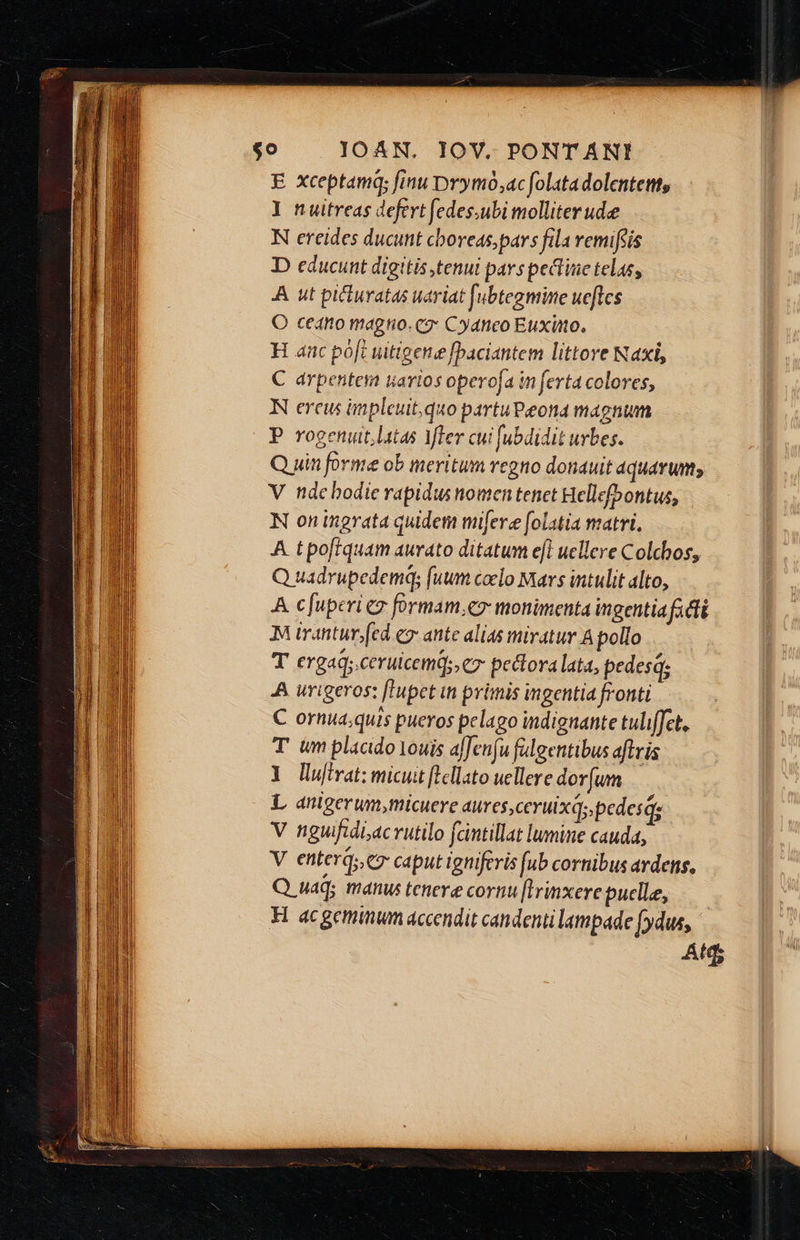 50 IOAN. IOV. PONTANI
E xceptamq; ſinu Drymò, ac ſolata dolentem,
I nuitreas defert ſedes, ubi molliter udæ
N ereides ducunt choreas, pars fila remiſsis
D educunt digitis, tenui pars pectine telas,
A ut picturatas uariat ſubtegmine ueſtes
O ceano magno. & Cyaneo Euxino.
H anc pòſt uitigenæ ſpaciantem littore Naxi,
C arpentem uarios operoſa in ſerta colores,
N ereus impleuit, quo partu Pæona magnum
P rogenuit, latas Iſter cui ſubdidit urbes.
Q uin formæ ob meritum regno donauit aquarum,
V nde hodie rapidus nomen tenet Helleſpontus,
N on ingrata quidem miſeræ ſolatia matri.
A t poſtquam aurato ditatum eſt uellere Colchos,
Q uadrupedemq; ſuum cœlo Mars intulit alto,
A c ſuperi & formam, & monimenta ingentia facti
M irantur, ſed & ante alias miratur Apollo
T ergaq; ceruicemq;, & pectora lata, pedesq;
A urigeros: ſtupet in primis ingentia fronti
C ornua, quis pueros pelago indignante tuliſſet.
T úm placido Iouis aſſenſu fulgentibus aſtris
I lluſtrat: micuit ſtellato uellere dorſum
L anigerum, micuere aures, ceruixq;, pedesq;
V nguifidi, ac rutilo ſcintillat lumine cauda,
V enterq;, & caput igniferis ſub cornibus ardens.
Q uaq; manus teneræ cornu ſtrinxere puellæ,
H ac geminum accendit candenti lampade ſydus,
Atq;